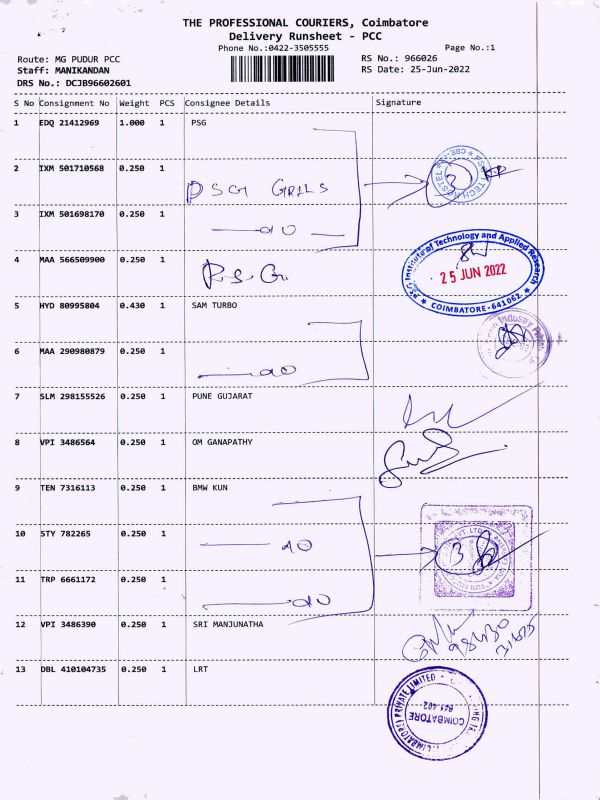 THE PROFESSIONAL COURIERS, Coimbatore
Delivery Runsheet - PCC
Phone No.:0422-3505555
Page No.:1
Route: MG PUDUR PCC
RS No.: 966026
Staff: MANIKANDAN
RS Date: 25-Jun-2022
DRS No.: DCJB96602601
S No Consignment No Weight PCS Consignee Details Signature
1 EDQ 21412969 1.000 1 PSG
2 IXM 501710568 0.250 1 PSG GRILS 3
3 IXM 501698170 0.250 1 do
4 MAA 566509900 0.250 1 P.S.G.
PSG Institute of Technology and Applied Research
25 JUN 2022
COIMBATORE-641 062.
5 HYD 80995804 0.430 1 SAM TURBO
6 MAA 290980879 0.250 1 do
7 SLM 298155526 0.250 1 PUNE GUJARAT
8 VPI 3486564 0.250 1 OM GANAPATHY
9 TEN 7316113 0.250 1 BMW KUN
10 STY 782265 0.250 1 do 3
11 TRP 6661172 0.250 1 do
12 VPI 3486390 0.250 1 SRI MANJUNATHA
13 DBL 410104735 0.250 1 LRT
PRIVATE LIMITED
COIMBATORE
641 402